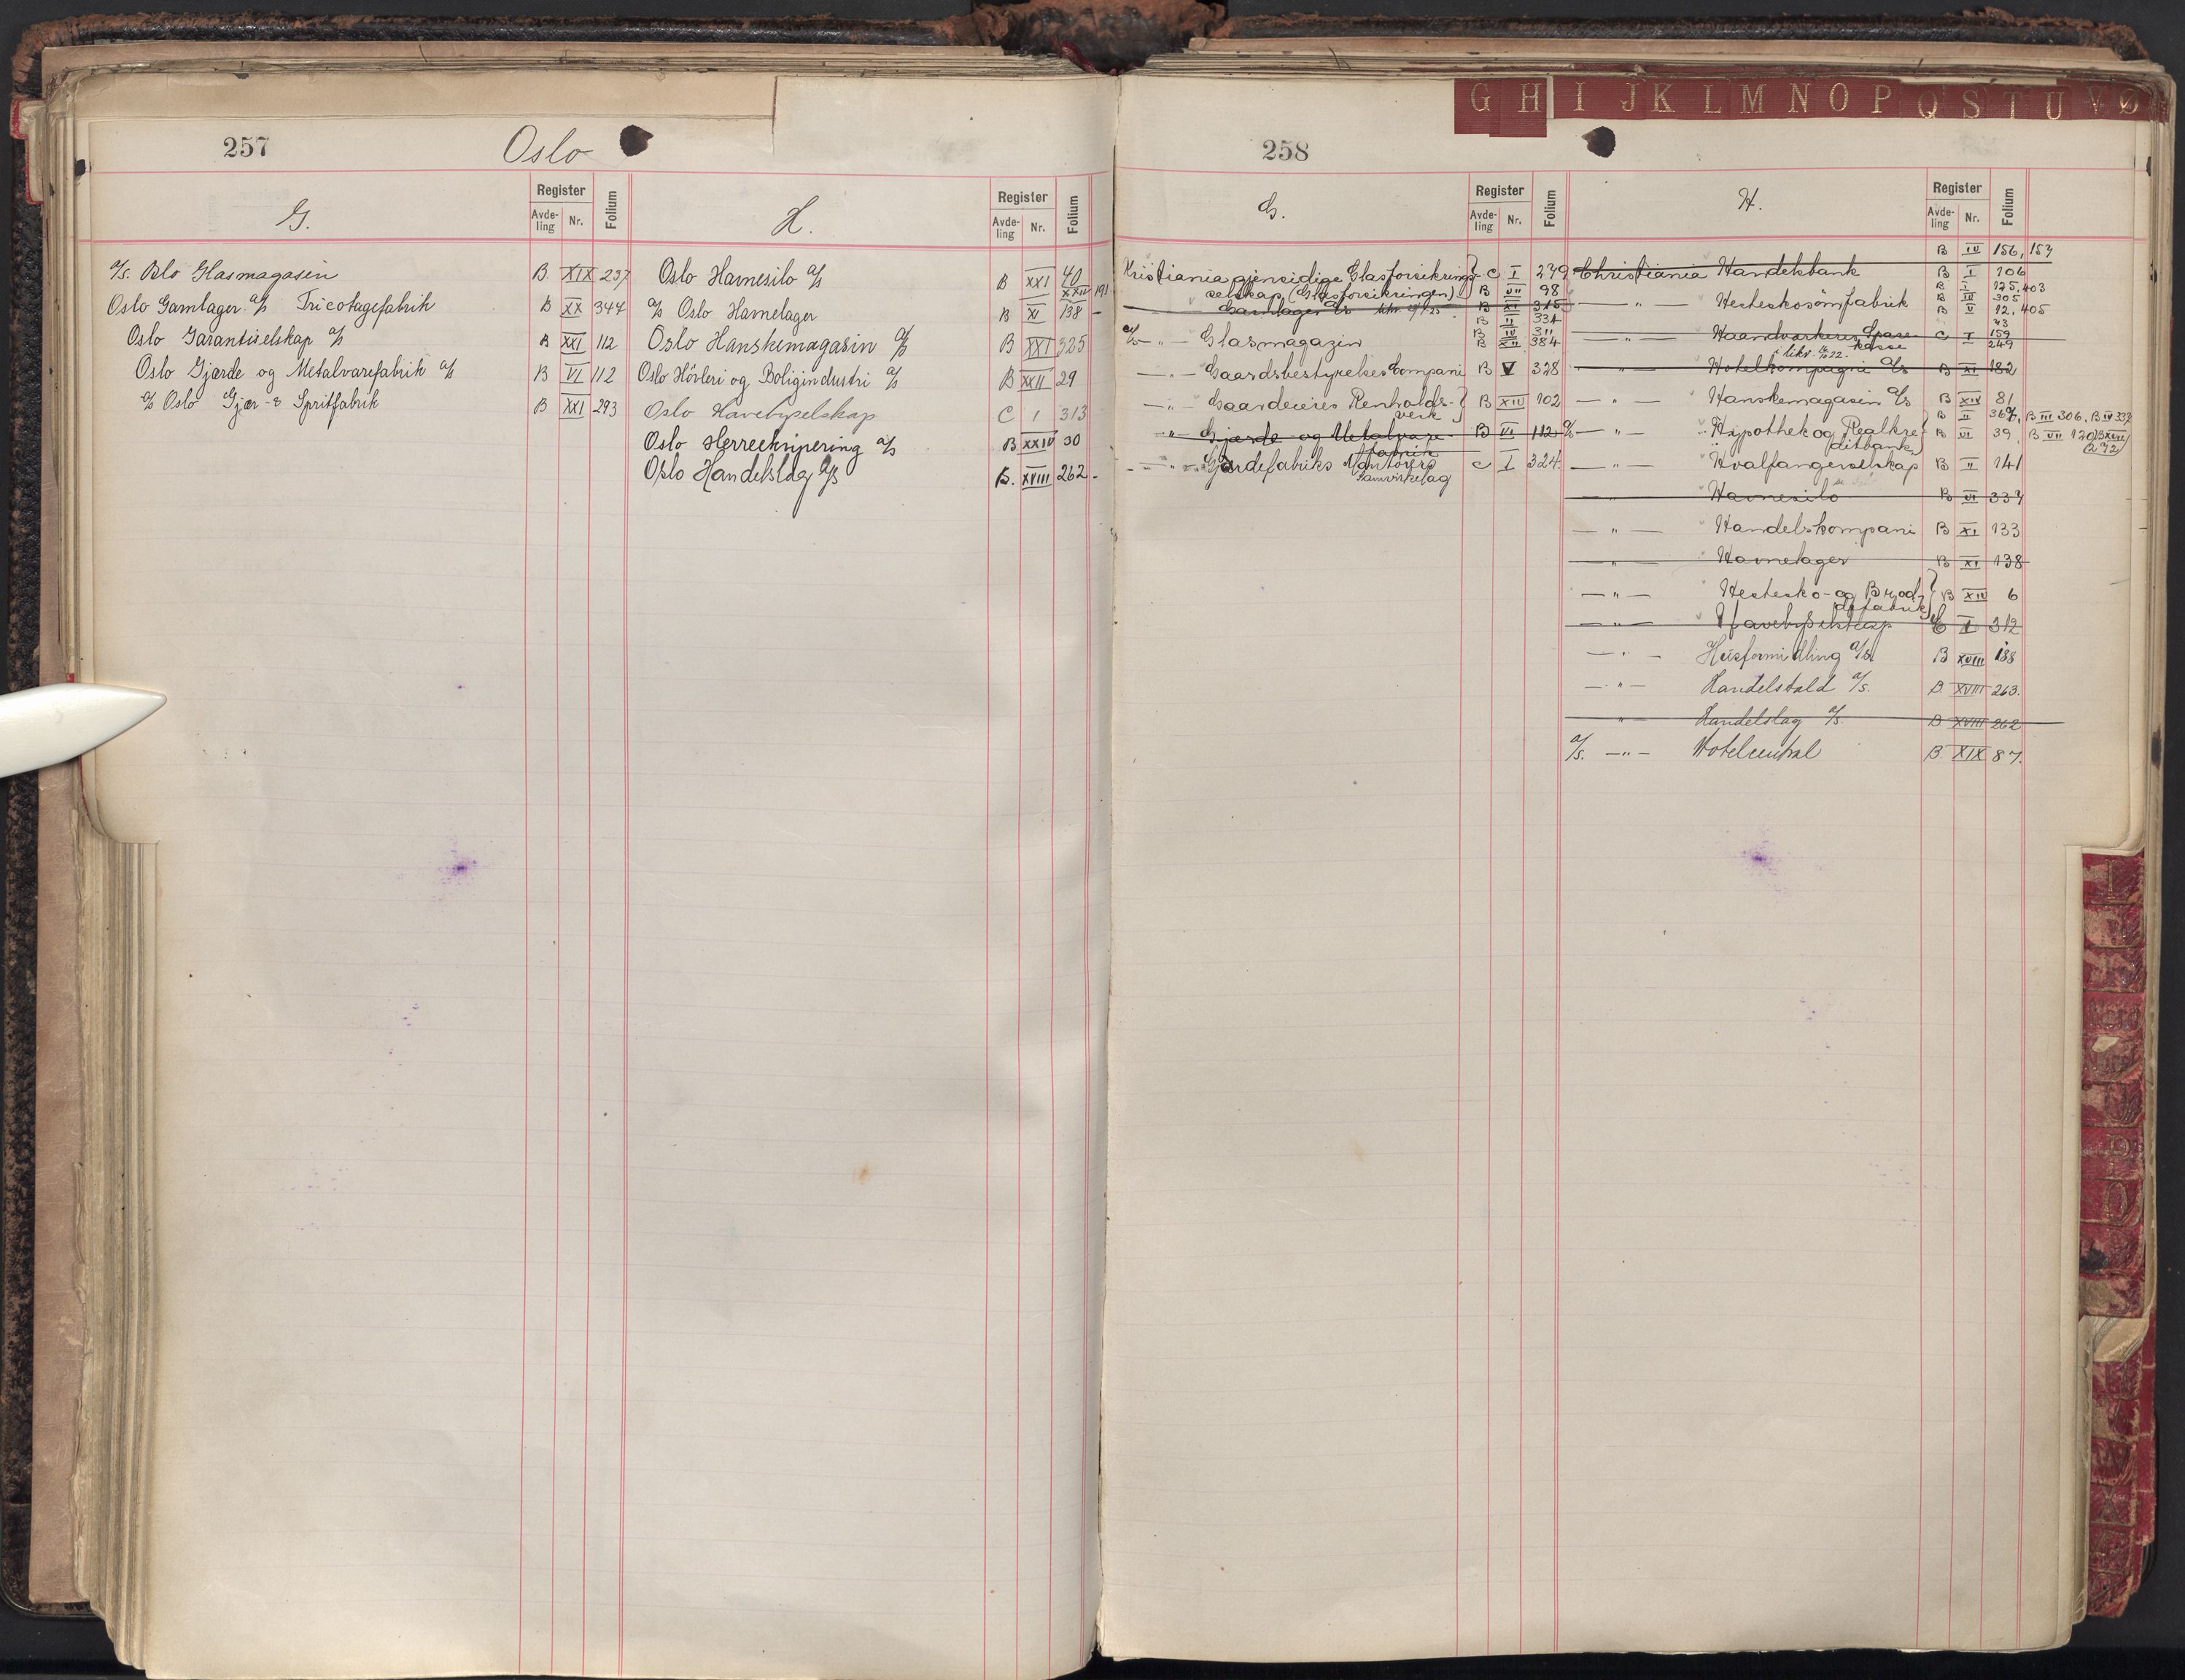 257 Oslo
G.
Register
Avde-ling Nr. Folium
a/s. Oslo Glasmagasin B XIX 237
Oslo Gamlager a/s Tricotagefabrik B XX 347
Oslo Garantiselskap a/s B XXI 112
Oslo Gjærde og Metalvarefabrik a/s B VI 112
a/s Oslo Gjær- & Spritfabrik B XXI 293
H.
Register
Avde-ling Nr. Folium
Oslo Havnesilo a/s B XXI 40
XXIV 191
a/s Oslo Havnelager B XI 138 -
Oslo Hanskemagasin a/s B XXI 325
Oslo Hövleri og Boligindustri a/s B XXII 29
Oslo Havebyselskap C I 313
Oslo Herreekvipering a/s B XXIV 30
Oslo Handelslag a/s B. XVIII 262 -
258
G H I J K L M N O P Q S T U V Ø
G.
Register
Avde-ling Nr. Folium
Kristiania gjensidige Glasforsikrings- C I 279
selskap (Glasforsikringen) B VII 98
Gamlager a/s B XI 315
B II 334
a/s - " - Glasmagazin B IV 311
B XII 384
- " - Gaardsbestyrelses Compani B V 328
- " - Gaardeieres Renholds- B XIV 102
verk
- " - Gjærde og Metalvare- B VI 112
fabrik
- " - Gjærdefabriks Montörers C I 324
Samvirkelag
H.
Register
Avde-ling Nr. Folium
B IV 156, 157
Christiania Handelsbank B I 106
B I 125, 403
B III 305
- " - Hesteskosömfabrik B V 12, 405
43
- " - Haandværkeres Spare- C I 159
kasse 249
i likv. 22.
- " - Hotelkompagni a/s B XI 182
- " - Hanskemagasin a/s B XIV 81
B II 367, B III 306, B IV 337
a/s - " - Hypothek og Realkre- B VI 39, B VII 120, B XVIII
ditbank 272
- " - Hvalfangerselskap B II 141
Havnesilo B VI 337
- " - Handelskompani B XI 133
- " - Havnelager B XI 138
- " - Hestesko- og Brod- B XIV 6
defabrik
- " - Havebyselskap C I 312
- " - Heisformidling a/s B XVIII 138
- " - Handelstald a/s. B XVIII 263.
- " - Handelslag a/s. B XVIII 262
a/s. - " - Hotelcentral B XIX 87.